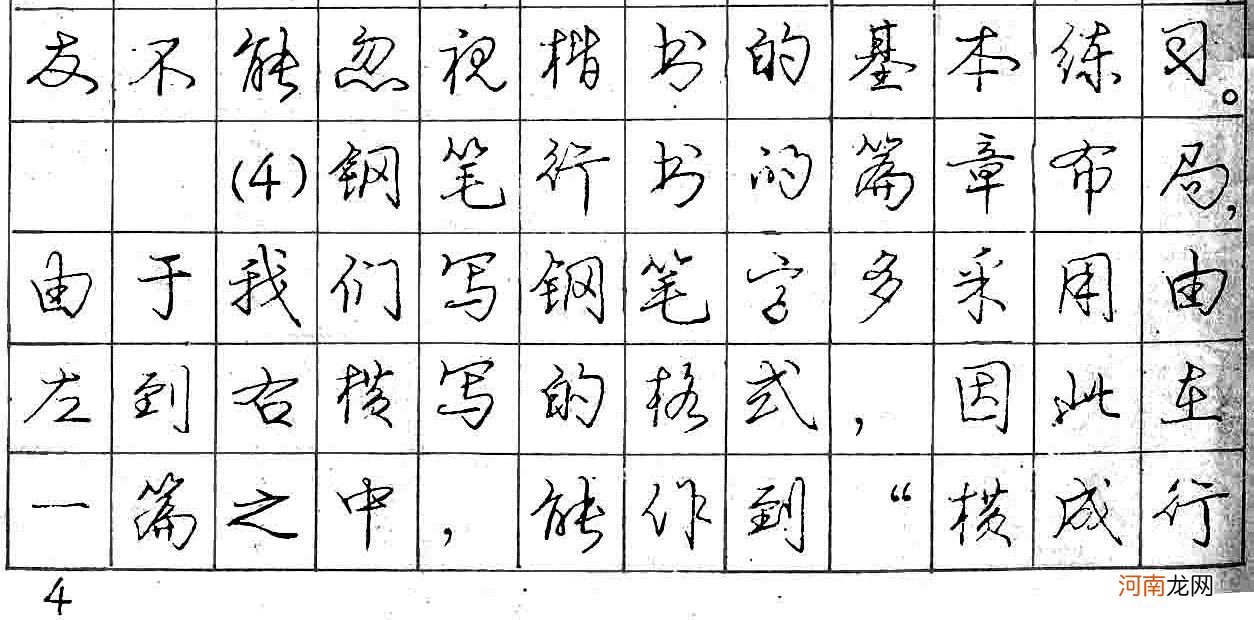 友不能忽视楷书的基本练习。
(4)钢笔行书的篇章布局,
由于我们写钢笔字多采用由
左到右横写的格式,因此在
一篇之中,能作到“横成行
4
河南龙网